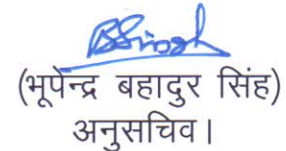 BSingh
(भूपेन्द्र बहादुर सिंह)
अनुसचिव।